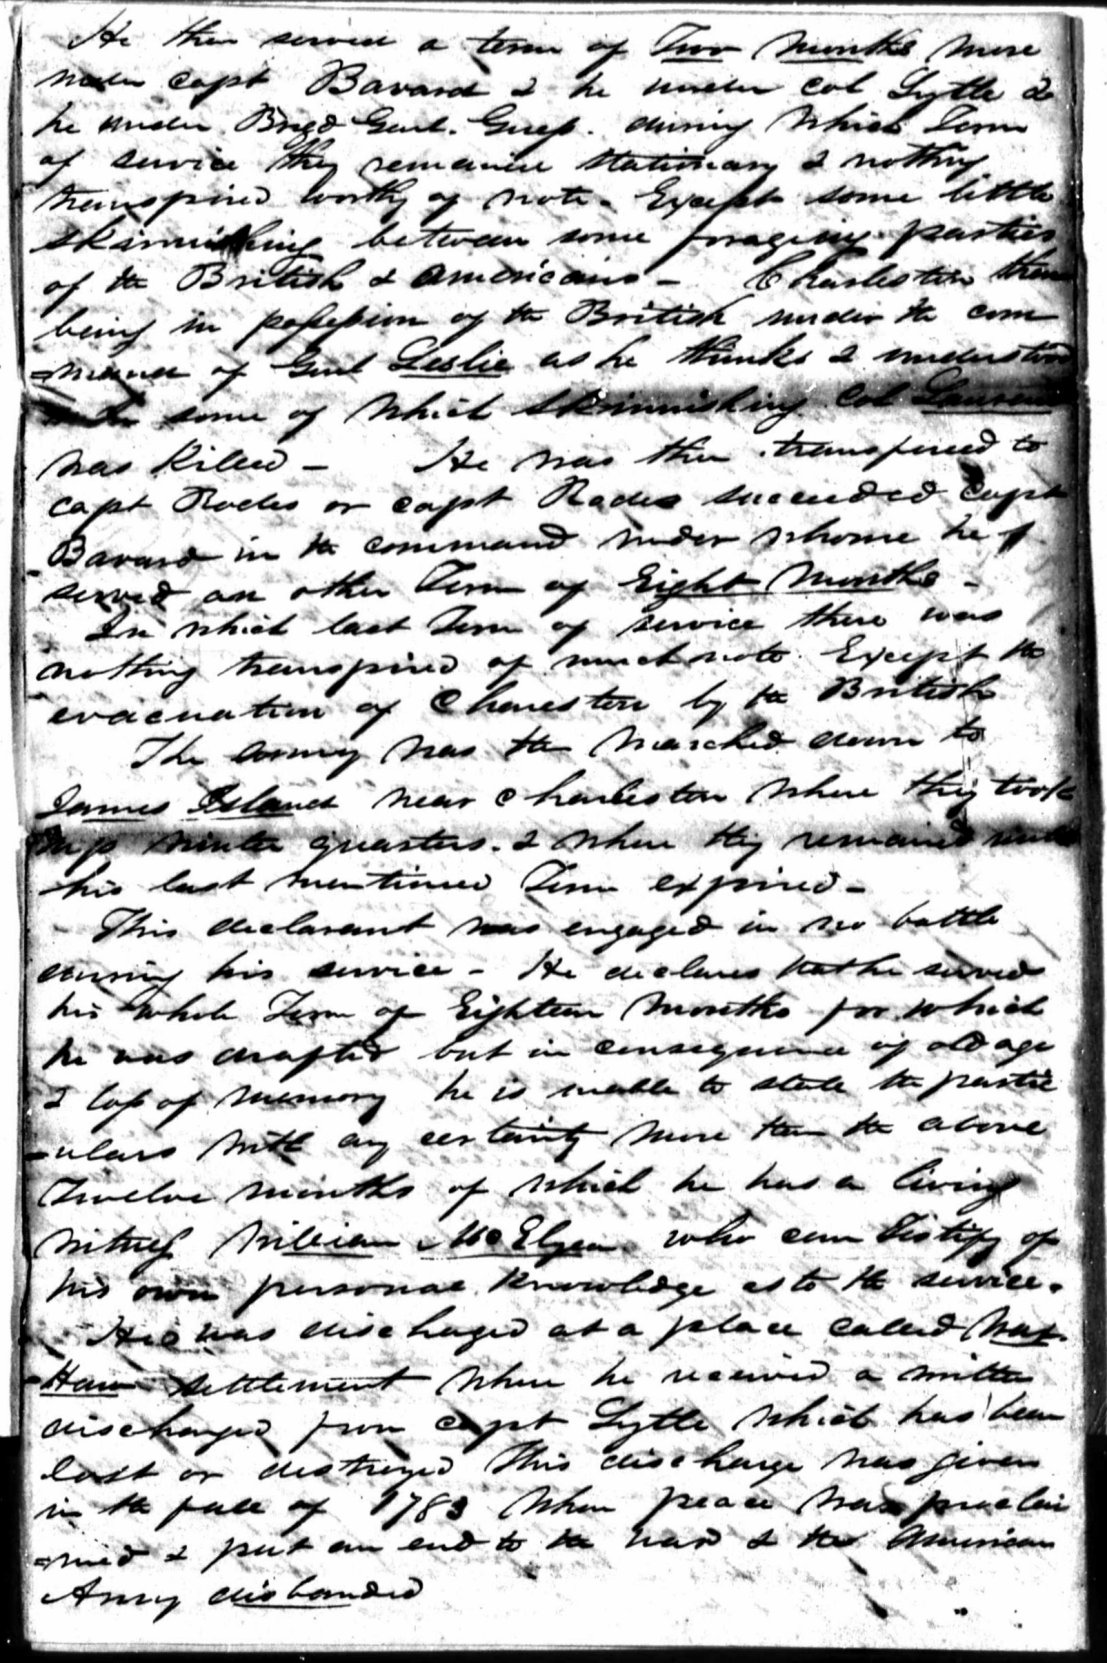 He then served a term of Two Months more
under capt Bavard & he under col Lytle &
he under Brigd Genl. Guess. during which Term
of service they remained stationary & nothing
transpired worthy of note - Except some little
skirmishing between some forageing parties
of the British & Americans - Charleston then
being in possession of the British under the com
=mand of Genl Leslie as he thinks & understood
some of which skirmishing Col Laurens
was killed - He was then transfered to
capt Rodes or capt Rades succeeded Capt
Bavard in the command under whome he
served an other Term of Eight Months -
In which last Term of service there was
nothing transpired of much note Except the
evacuation of Charleston by the British
The army was then marched down to
James Island near Charleston where they took
up winter quarters. & where they remained until
his last mentioned Term expired -
This declarant was engaged in no battle
during his service - He declares that he served
his whole Term of Eighteen Months for which
he was drafted but in consequence of old age
& loss of memory he is unable to state the partic
=ulars with any certainty more than the above
Twelve months of which he has a living
witness William McElyea who can Testify of
his own personal knowledge as to the service.
He was discharged at a place called Wax
Haw settlement where he received a written
discharged from capt Lytle which has been
lost or destroyed This discharge was given
in the fall of 1783 when peace was proclai
=med & put an end to the war & the American
Army disbanded